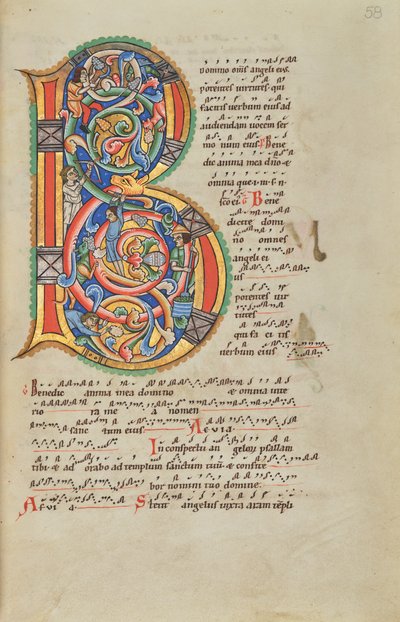 58
B
domino oms angeli eius.
potentes uirtutes. qui
facitis uerbum eius ad
audiendam uocem ser
mo num eius. Ps Bene
dic anima mea dno &
omnia que
Bene
dicite domi
no omnes
angeli ei
us
potentes uir
tutes
qui fa ci tis
uerbum eius
Benedic anima mea domino & omnia inte
rio ra me a nomen
sanc tum eius Aeuia.
In conspectu an gelorum psallam
tibi & ad orabo ad templum sanctum tuum & confite
bor nomini tuo domine.
Aeuia. Stetit angelus iuxta aram templi